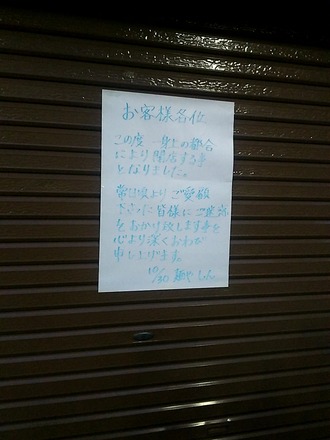 お客様各位
この度 一身上の都合
により閉店する事
となりました。
常日頃よりご愛敬
下さった皆様にご迷惑
をおかけ致します事を
心より深くおわび
申し上げます。
10/30 麺や